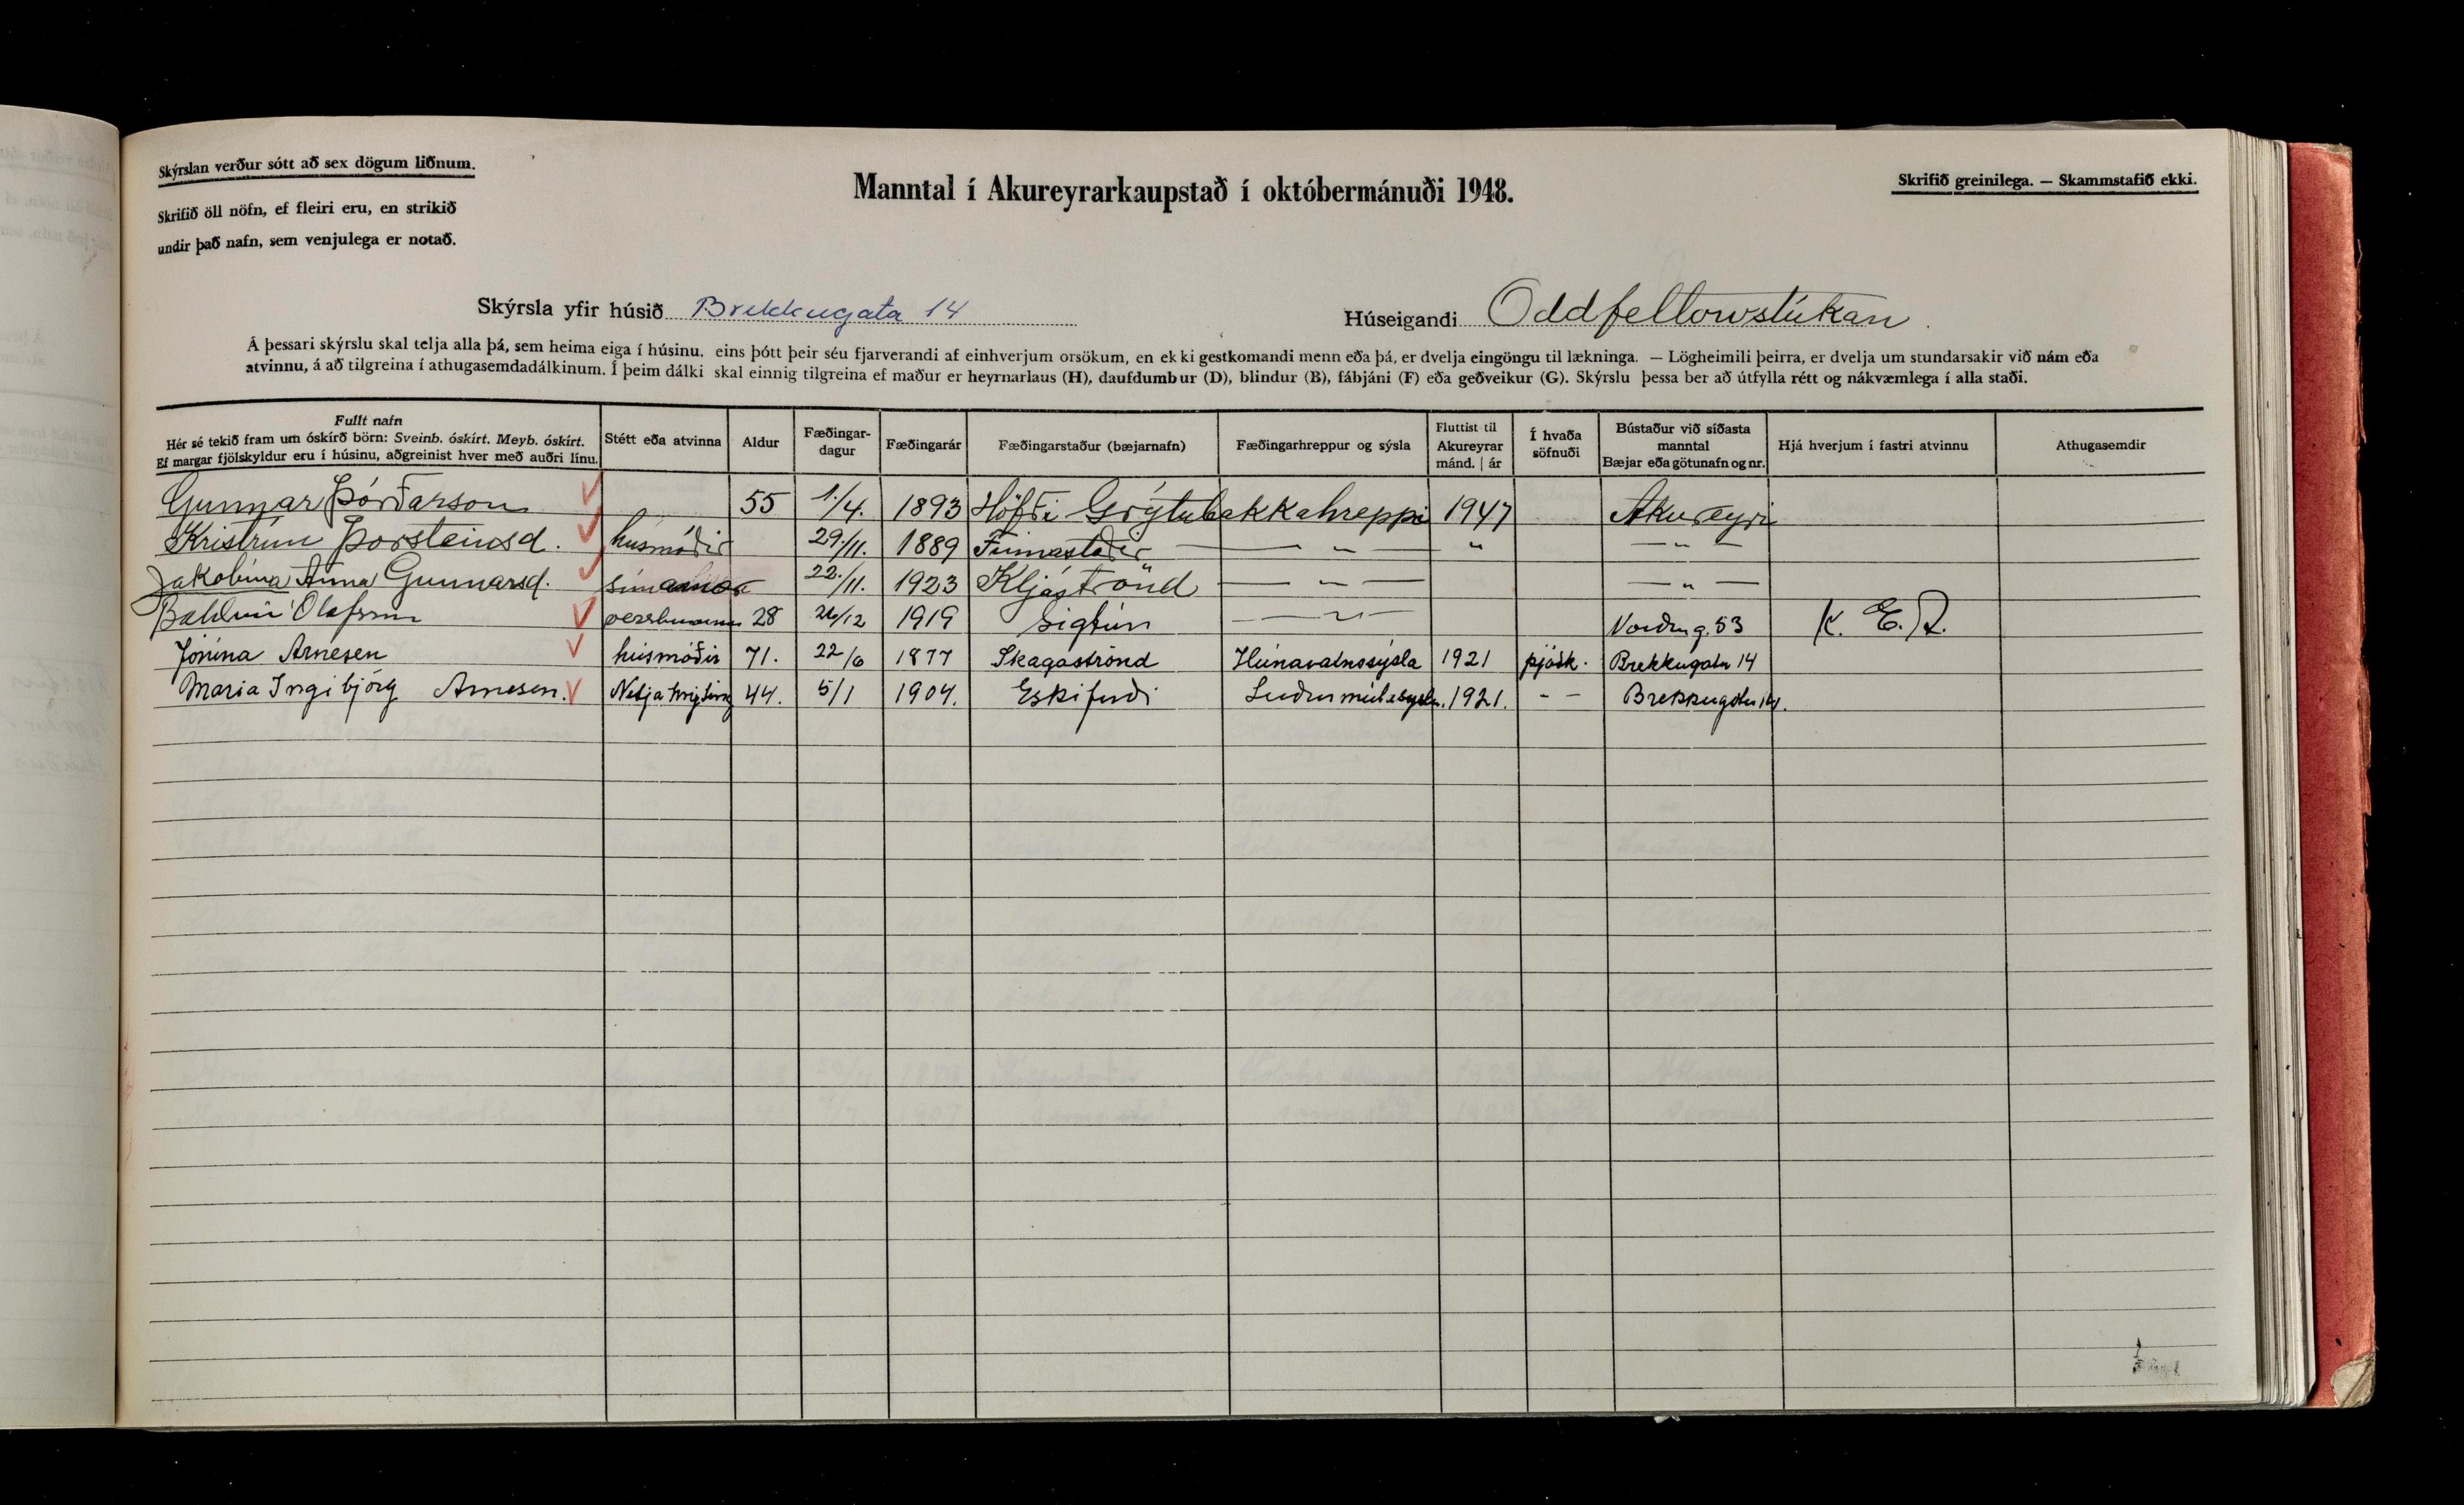 Skýrslan verður sótt að sex dögum liðnum.
Skrifið öll nöfn, ef fleiri eru, en strikið
undir það nafn, sem venjulega er notað.
Manntal í Akureyrarkaupstað í októbermánuði 1948.
Skrifið greinilega. — Skammstafið ekki.
Skýrsla yfir húsið Brekkugata 14
Húseigandi Oddfellowstúkan.
Á þessari skýrslu skal telja alla þá, sem heima eiga í húsinu, eins þótt þeir séu fjarverandi af einhverjum orsökum, en ekki gestkomandi menn eða þá, er dvelja eingöngu til lækninga. — Lögheimili þeirra, er dvelja um stundarsakir við nám eða
atvinnu, á að tilgreina í athugasemdadálkinum. Í þeim dálki skal einnig tilgreina ef maður er heyrnarlaus (H), daufdumbur (D), blindur (B), fábjáni (F) eða geðveikur (G). Skýrslu þessa ber að útfylla rétt og nákvæmlega í alla staði.
Fullt nafn
Hér sé tekið fram um óskírð börn: Sveinb. óskírt. Meyb. óskírt.
Ef margar fjölskyldur eru í húsinu, aðgreinist hver með auðri línu.
Stétt eða atvinna
Aldur
Fæðingar-
dagur
Fæðingarár
Fæðingarstaður (bæjarnafn)
Fæðingarhreppur og sýsla
Fluttist til
Akureyrar
mánd. | ár
Í hvaða
söfnuði
Bústaður við síðasta
manntal
Bæjar eða götunafn og nr.
Hjá hverjum í fastri atvinnu
Athugasemdir
Gunnar Þórðarson 55 1./4. 1893 Höfði Grýtubakkahreppi 1947 Akureyri
Kristrún Þorsteinsd. húsmóðir 29./11. 1889 Finnastaðir — " — " — " —
Jakobína Anna Gunnarsd. 22./11. 1923 Kljáströnd — " — — " —
Baldvin Ólafsson verslunarm 28 26/12 1919 Sigtún — " — Norðurg. 53 K. E. A.
Jónína Arnesen húsmóðir 71. 22/6 1877 Skagaströnd Húnavatnssýsla 1921 þjóðk. Brekkugata 14
Maria Ingibjörg Arnesen. 44. 5/1 1904. Eskifirði Suðurmúlasýslu. 1921. - - Brekkugötu 14.